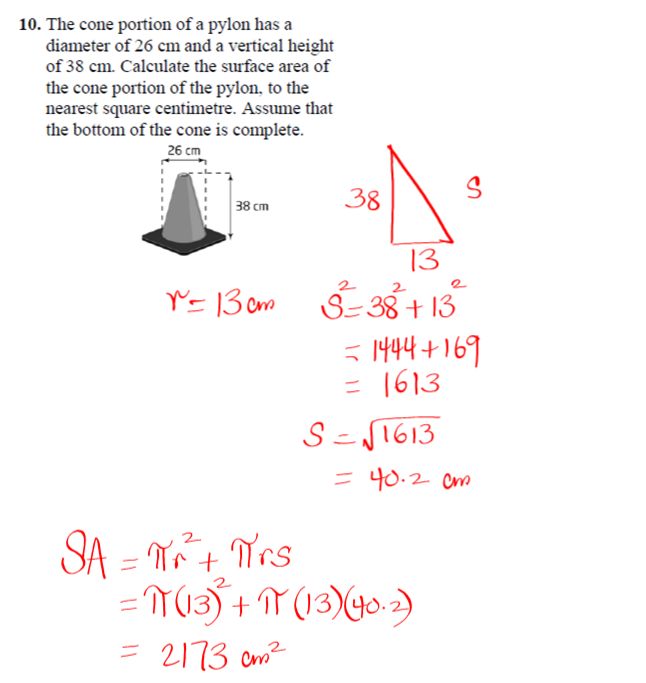 10. The cone portion of a pylon has a
diameter of 26 cm and a vertical height
of 38 cm. Calculate the surface area of
the cone portion of the pylon, to the
nearest square centimetre. Assume that
the bottom of the cone is complete.
26 cm
38 cm
38
S
13
r = 13 cm
S² = 38² + 13²
= 1444 + 169
= 1613
S = √1613
= 40.2 cm
SA = πr² + πrs
= π(13)² + π(13)(40.2)
= 2173 cm²